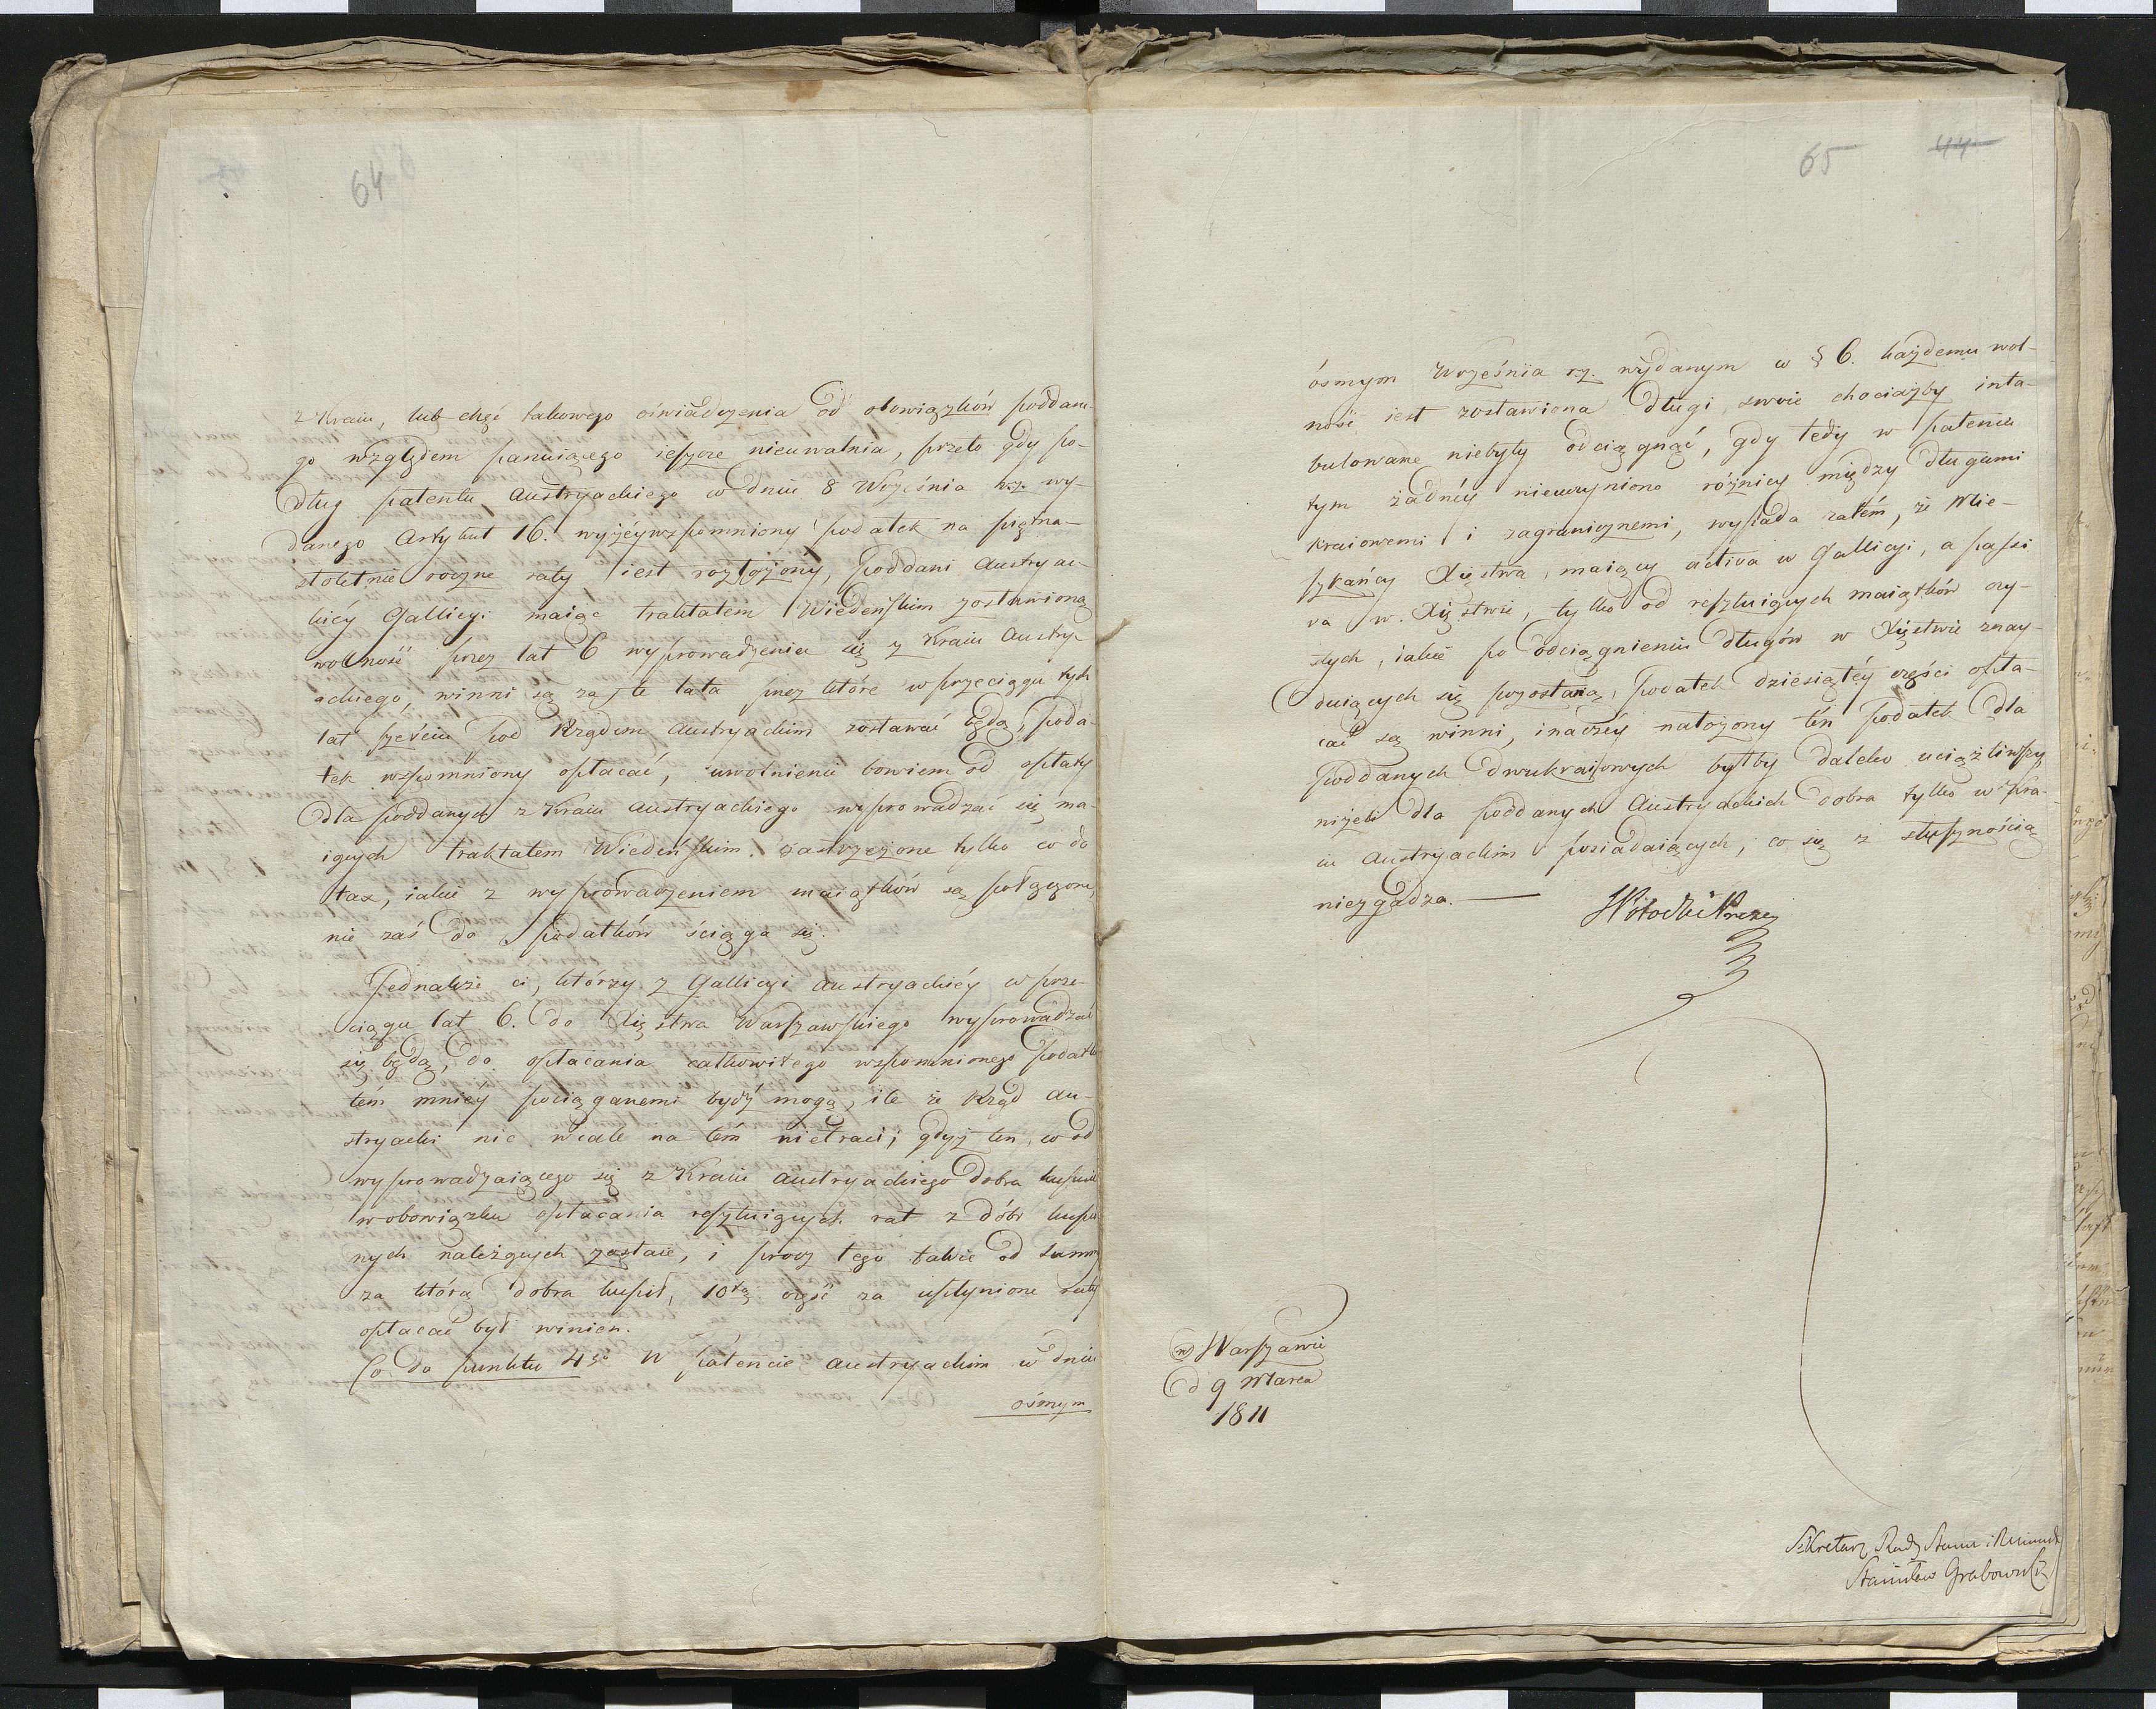 64
z Kraiu, lub chęć takowego oświadczenia od obowiązków poddane-
go względem panuiącego ieszcze nieuwalnia, przeto gdy po-
dług patentu Austryackiego w dniu 8 Września r.z. wy-
danego Artykuł 16. wyżéywspomniony podatek na piętna-
stoletnie roczne raty iest rozłożony, poddani Austryac-
kiéy Gallicyi maiąc traktatem Wiedeńskim zostawioną
wolność przez lat 6 wyprowadzenia się z Kraiu Austry-
ackiego, winni są za te lata przez które w przeciągu tych
lat sześciu pod Rządem Austryackim zostawać będą, poda-
tek wspomniony opłacać, uwolnienie bowiem od opłaty
dla poddanych z Kraiu Austryackiego wyprowadzać się ma-
iących traktatem Wiedeńskim zastrzeżone tylko co do
tax, iakie z wyprowadzeniem maiątków są połączone,
nie zaś do podatków ściąga się.
Jednakże ci, którzy z Gallicyi Austryackiéy w prze-
ciągu lat 6. do Xięstwa Warszawskiego wyprowadzać
się będą, do opłacania całkowitego wspomnionego podatku
tém mniéy pociąganemi bydź mogą, ile że Rząd Au-
stryacki nic wcale na tém nietraci; gdyż ten, co od
wyprowadzaiącego się z Kraiu Austryackiego dobra kupił
w obowiązku opłacania resztuiących rat z dóbr kupio-
nych należących zostaie, i procz tego takie od summy
za którą dobra kupił, 10tą część za upłynione raty
opłacać był winien.
Co do punktu 4go W patencie Austryackim w dniu
ósmym
65 44
ósmym Września r.z. wydanym w § 6. każdemu wol-
ność iest zostawiona długi swoie chociażby inta-
bulowane niebyły odciągnąć, gdy tedy w patencie
tym żadnéy nieuczyniono różnicy między długami
kraiowemi i zagranicznemi, wypada zatém, że Mie-
szkańcy Xięstwa, maiący activa w Gallicyi, a passi-
va w Xięstwie, tylko od resztuiących maiątków czy-
stych, iakie po odciągnieniu długów w Xięstwie znay-
duiących się pozostaną, podatek dziesiątéy części opła-
cać są winni, inaczéy nałożony ten podatek dla
poddanych dwukraiowych byłby daleko uciążliwszy
niżeli dla poddanych Austryackich dobra tylko w Kra-
iu Austryackim posiadaiących, co się z słusznością
niezgadza.
w Warszawie
d 9 Marca
1811
Sekretarz Rady Stanu i Ministr
Stanisław Grabowski